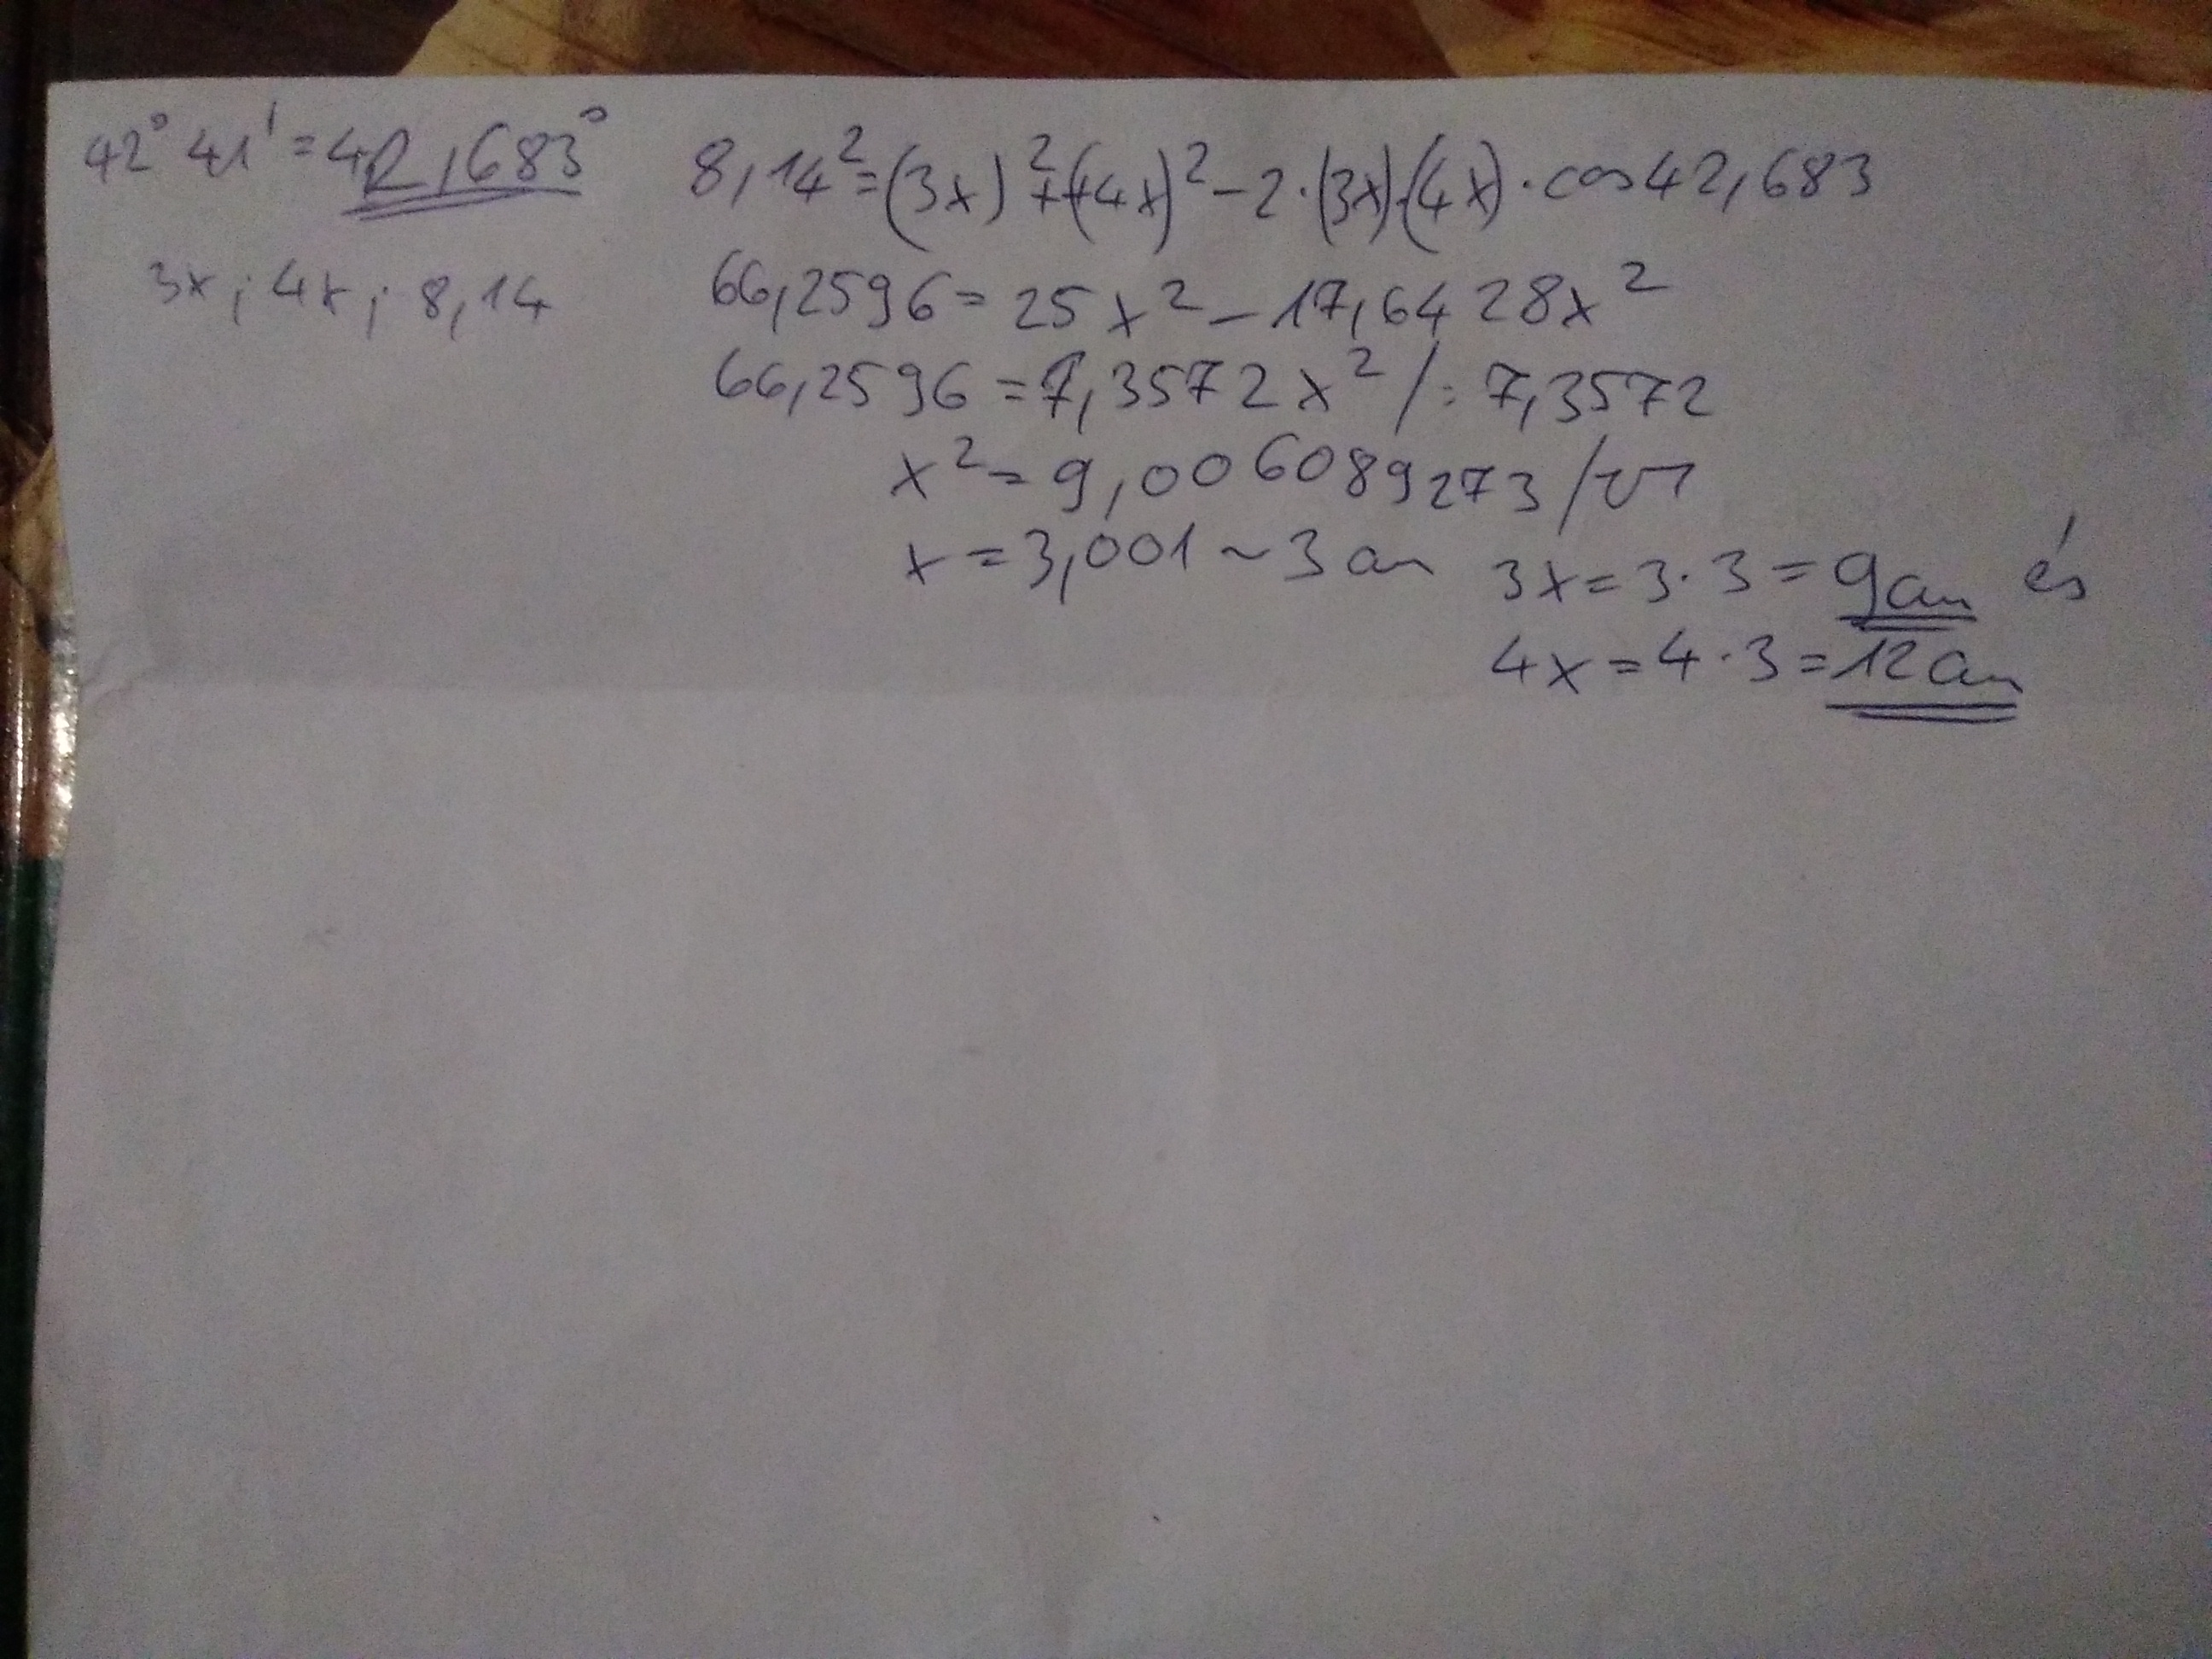 42° 41' = 42,683°
3x ; 4x ; 8,14
8,14² = (3x)² + (4x)² - 2·(3x)·(4x)·cos42,683
66,2596 = 25x² - 17,6428x²
66,2596 = 7,3572x² /: 7,3572
x² = 9,006089273 /√
x = 3,001 ~ 3 cm
3x = 3·3 = 9cm és
4x = 4·3 = 12cm